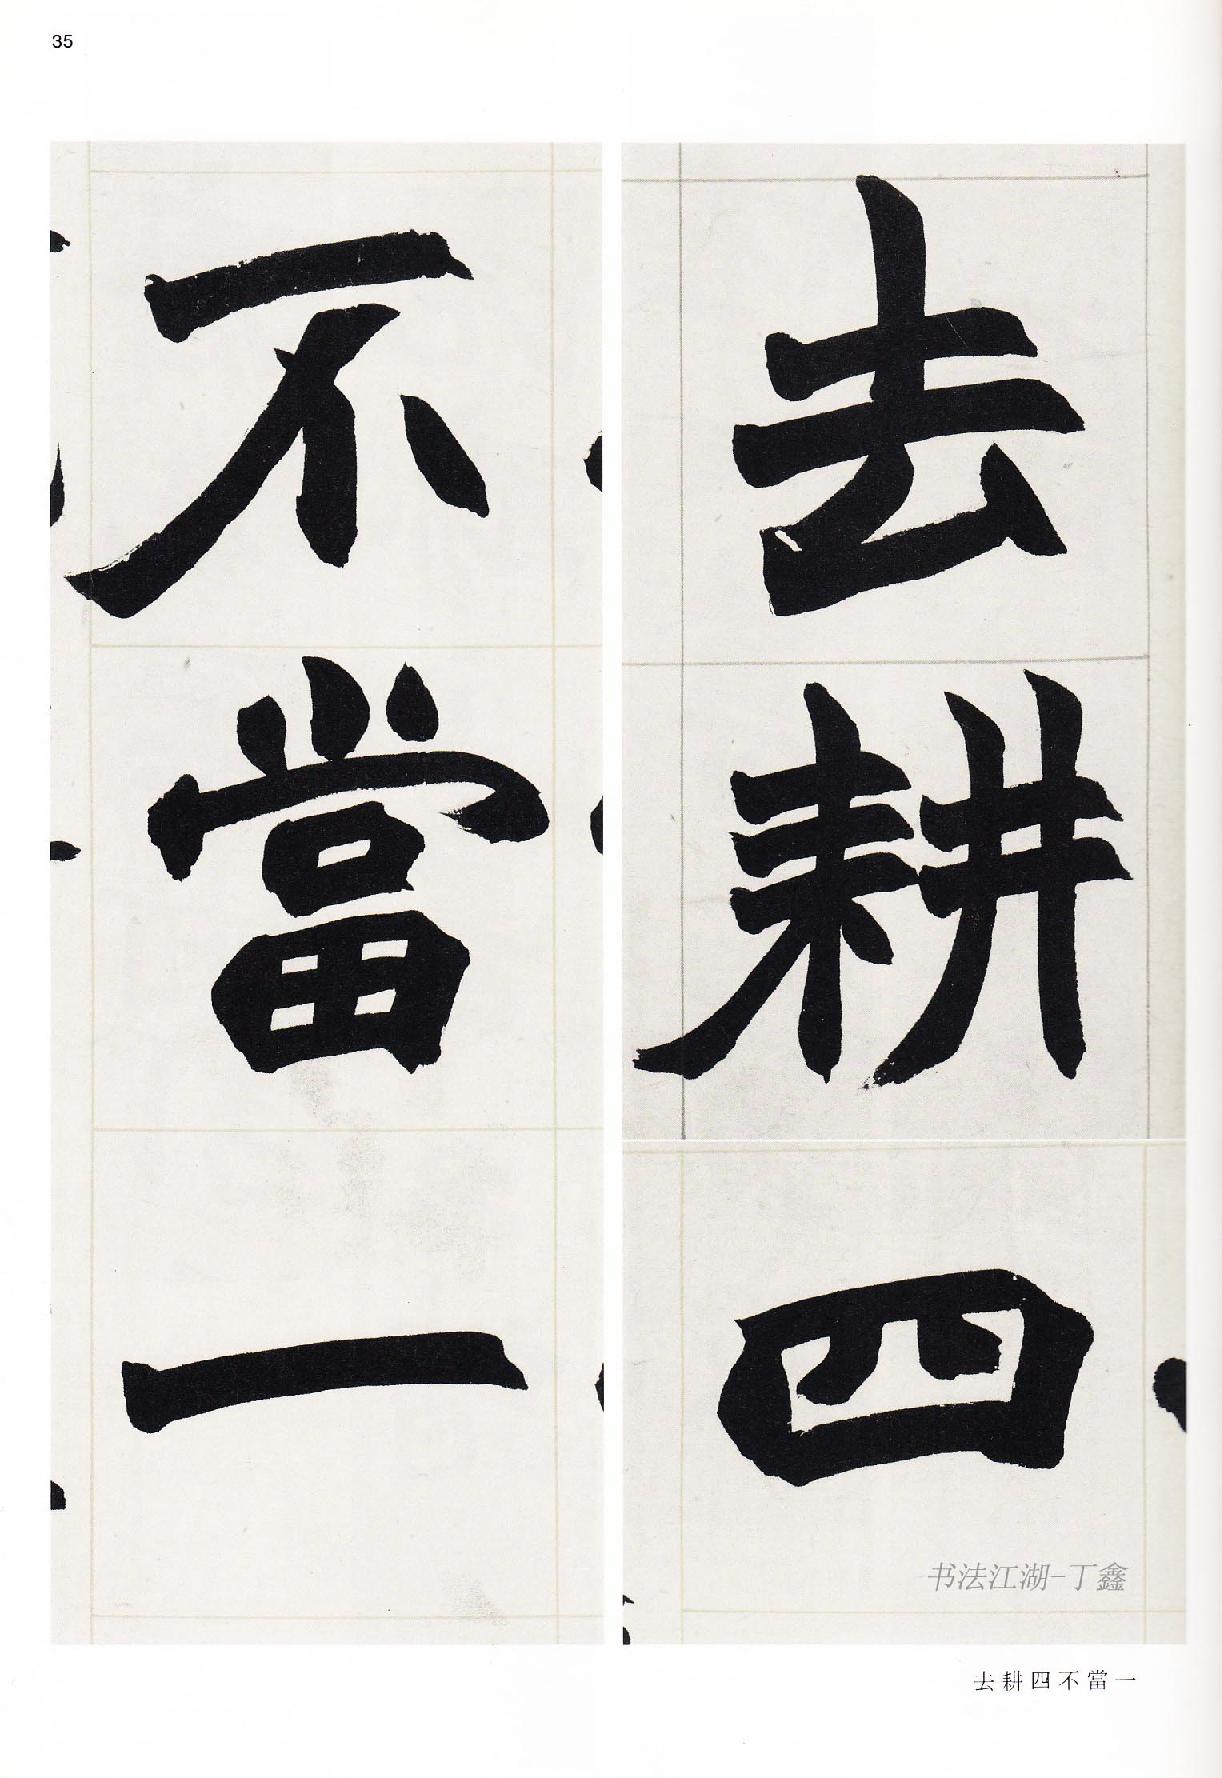 35
去耕四
不當一
书法江湖-丁鑫
去耕四不當一